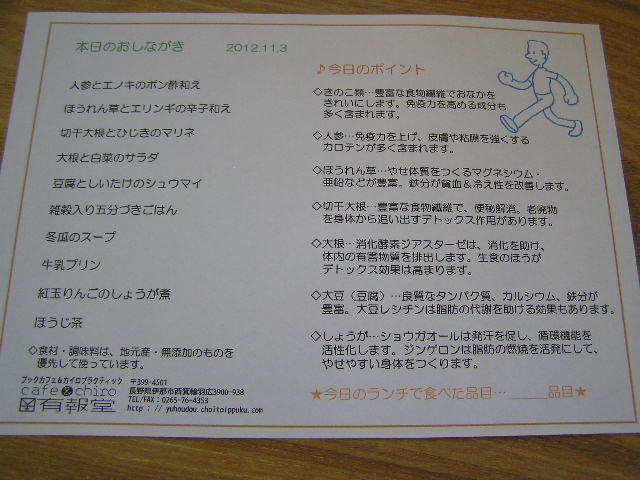 本日のおしながき 2012.11.3
人参とエノキのポン酢和え
ほうれん草とエリンギの辛子和え
切干大根とひじきのマリネ
大根と白菜のサラダ
豆腐としいたけのシュウマイ
雑穀入り五分づきごはん
冬瓜のスープ
牛乳プリン
紅玉りんごのしょうが煮
ほうじ茶
◇食材・調味料は、地元産・無添加のものを
優先して使っています。
ブックカフェ&カイロプラクティック
cafe & chiro
有報堂
〒399-4501
長野県伊那市西箕輪羽広3900-938
TEL/FAX:0265-76-4353
http://yuhoudou.choitoippuku.com
♪今日のポイント
◇きのこ類…豊富な食物繊維でおなかを
きれいにします。免疫力を高める成分も
多く含まれます。
◇人参…免疫力を上げ、皮膚や粘膜を強くする
カロテンが多く含まれます。
◇ほうれん草…やせ体質をつくるマグネシウム・
亜鉛などが豊富。鉄分が貧血&冷え性を改善します。
◇切干大根…豊富な食物繊維で、便秘解消。老廃物
を身体から追い出すデトックス作用があります。
◇大根…消化酵素ジアスターゼは、消化を助け、
体内の有害物質を排出します。生食のほうが
デトックス効果は高まります。
◇大豆（豆腐）…良質なタンパク質、カルシウム、鉄分が
豊富。大豆レシチンは脂肪の代謝を助ける効果もあります。
◇しょうが…ショウガオールは発汗を促し、循環機能を
活性化します。ジンゲロンは脂肪の燃焼を活発にして、
やせやすい身体をつくります。
★今日のランチで食べた品目…_____品目★